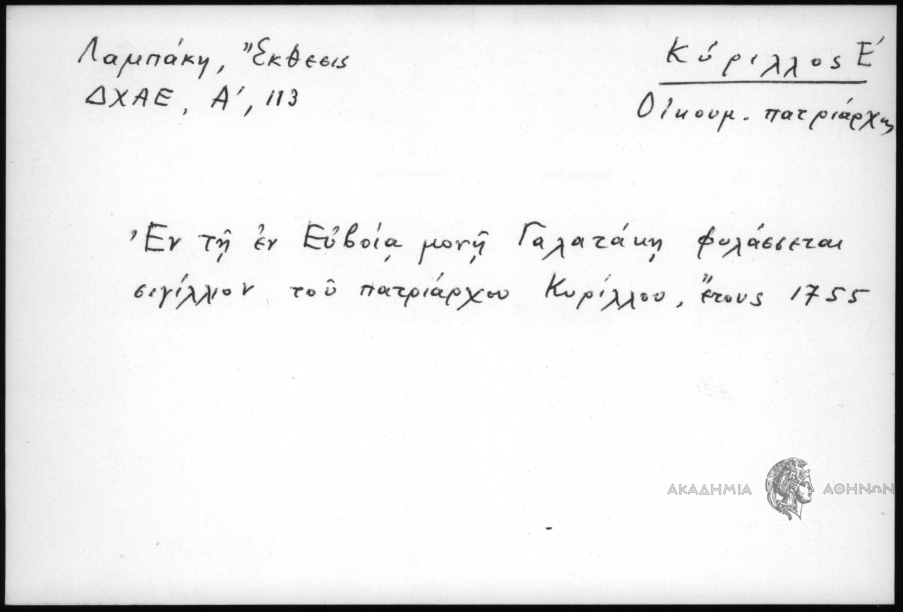 Λαμπάκη, Ἔκθεσις
ΔΧΑΕ, Α', 113
Κύριλλος Ε'
Οἰκουμ. πατριάρχης
Ἐν τῇ ἐν Εὐβοίᾳ μονῇ Γαλατάκη φυλάσσεται
σιγίλλιον τοῦ πατριάρχου Κυρίλλου, ἔτους 1755
ΑΚΑΔΗΜΙΑ ΑΘΗΝΩΝ